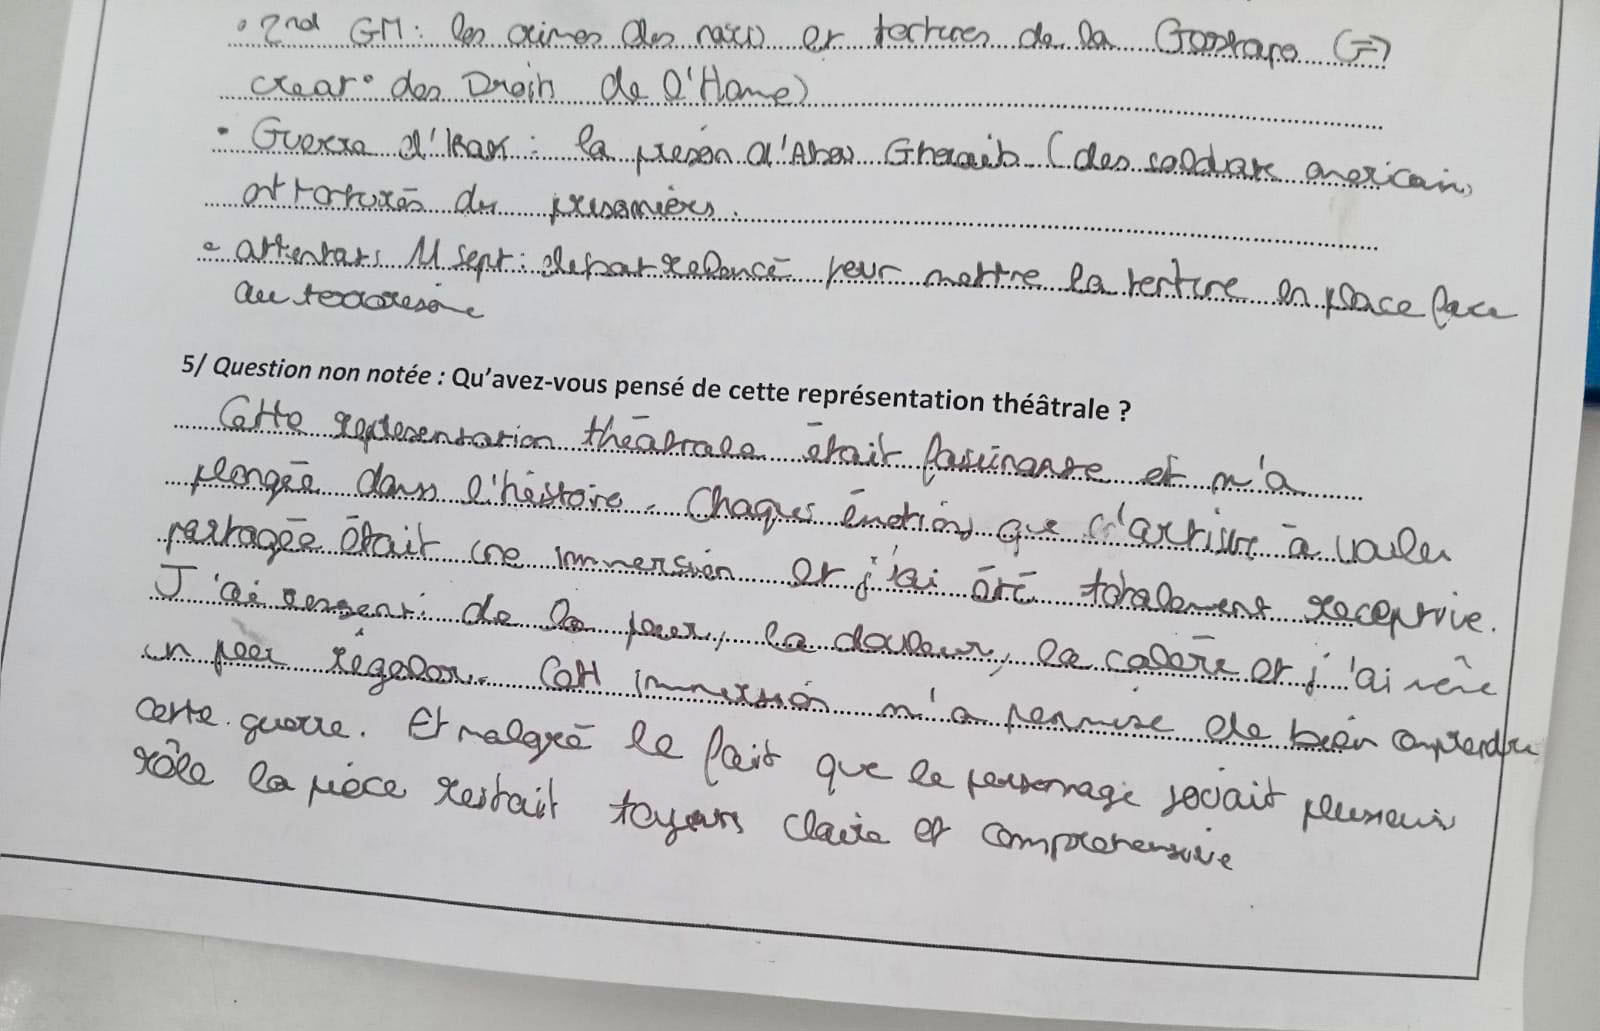 • 2nd GM : les crimes des nazis et tortures de la Gestapo (=>
creat° des Droits de l'Home)
• Guerre d'Irak : la prison d'Abou Ghraib (des soldats americains
ont torturés des prisoniers.
• attentats 11 sept : debat relancé pour mettre la torture en place face
au terrorisme
5/ Question non notée : Qu'avez-vous pensé de cette représentation théâtrale ?
Cette representation théatrale était fascinante et m'a
plongée dans l'histoire. Chaques émotions que l'artiste à voulu
partagée était une immersion et j'ai été totalement receptive.
J'ai ressenti de la peur, la douleur, la colère et j'ai même
un peu rigolon. Cett immersion m'a permise de bien comprendre
cette guerre. Et malgré le fait que le personnage jouait plusieurs
rôle la pièce restait toujours claire et comprehensive